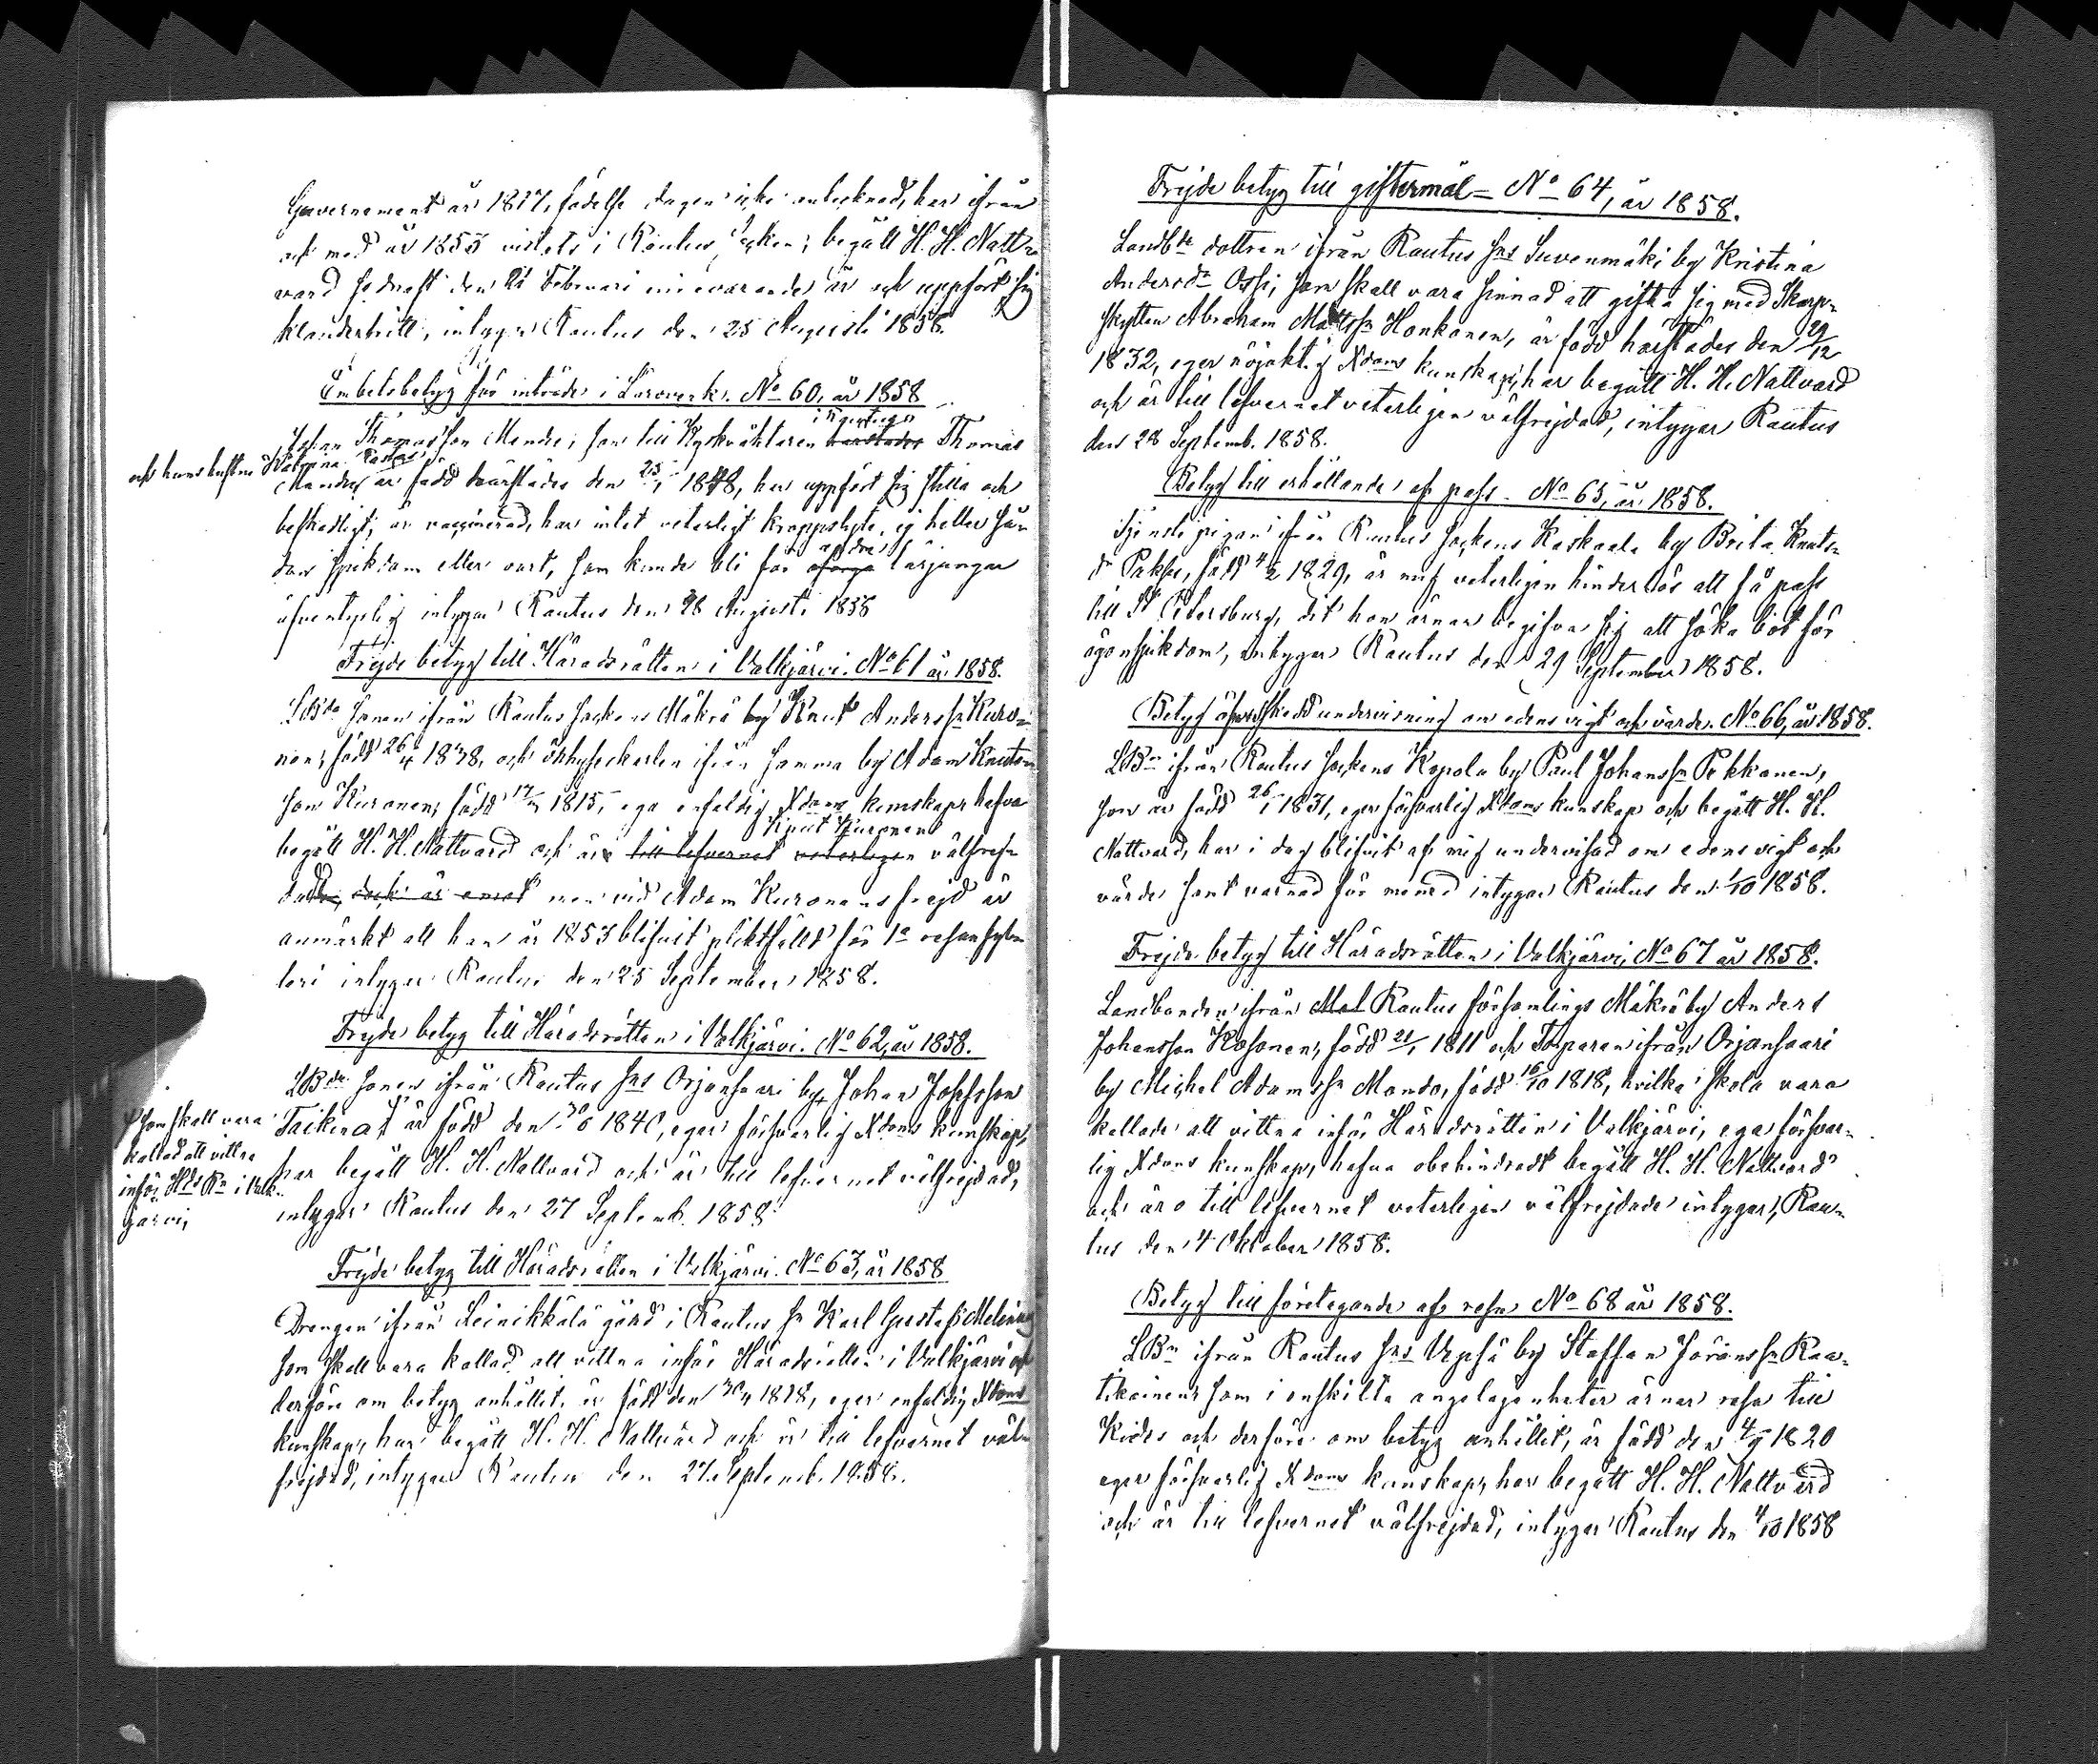 Guvernement år 1817, födelse dagen icke antecknad, har ifrån
och med år 1855 vistats i Rautus Socken; begått H. H. Natt-
vard sednast den 21 Februari innevarande år och uppfört sig
klanderfritt, intygar Rautus den 25 Augusti 1858.
Embetsbetyg för inträde i Läroverk. No 60, år 1858
Johan Thomasson Mandu; son till Kyrkväktaren härstädes Thomas
och hans hustru Katrina
Mandu är född härstädes den 25/1 1848, har uppfört sig stilla och
beskedligt, är vaccinerad, har intet veterligt kroppslyte, ej heller sån
dan sjukdom eller vart, som kunde bli för öfriga andra lärjungar
äfventyrlig intygar Rautus den 28 Augusti 1858
Frejde betyg till Häradsrätten i Valkjärvi. No 61 år 1858.
LBde sonen ifrån Rautus Sockens Mäkrä by Knut Anderssn Kuro-
nen, född 26/4 1838, och inhysekarlen ifrån samma by Adam Knuts-
son Kuronen, född 1815, ega enfaldig Xdoms kunskap, hafva
begått H. H. Nattvard och är Knut Kuronen till lefvernet veterligen välfrej-
dad, men vid Adam Kuronens frejd är
anmärkt att han år 1853 blifvit pliktfälld för 1a resan fyl-
leri intygar Rautus den 25 September 1858.
Frejde betyg till Häradsrätten i Valkjärvi. No 62, år 1858.
LBde sonen ifrån Rautus Sns Orjansaari by, Johan Josefsson
Taikina är född den 30/6 1840, eger försvarlig Xdoms kunskap,
som skall vara
kallad att vittna
inför Hds Rn i Valk-
järvi,
har begått H. H. Nattvard och är till lefvernet välfrejdad,
intygar Rautus den 27 Septemb. 1858
Frejde betyg till Häradsrätten i Valkjärvi. No 63, år 1858
Drengen ifrån Leinikkälä gård i Rautus Sn Karl Gustaf Melin
som skall vara kallad att vittna inför Häradsrätten i Valkjärvi och
derföre om betyg anhållit, är född den 1828, eger enfaldig Xdoms
kunskap, har begått H. H. Nattvard och är till lefvernet väl-
frejdad, intygar Rautus den 27 Septemb. 1858.
Frejde betyg till giftermål = No 64, år 1858.
Landbde dottren ifrån Rautus Sns Suvenmäki by Kristina
Andersdr Ossi, som skall vara sinnad att gifta sig med Skarp-
skytten Abraham Mattssn Honkanen, är född härstädes den 29/12
1832, eger nöjaktig Xdoms kunskap, har begått H. H. Nattvard
och är till lefvernet veterligen välfrejdad, intygar Rautus
den 28 Septemb. 1858.
Betyg till erhållande af pass. No 65, år 1858.
Tjensti pigan ifrån Rautus Sockens Kaskaala by Brita Knuts-
dr Pakki, född 4/2 1829, är mig veterligen hinderlös att få pass
till St Petersburg, dit hon ärnar begifva sig att söka bot för
ögonsjukdom, intygar Rautus den 29 September 1858.
Betyg öfver skedd undervisning om edens vigt och värde. No 66, år 1858.
LBn ifrån Rautus Sockens Kopola by Paul Johanssn Pekkanen,
som är född 26/1 1831, eger försvarlig Xdoms kunskap och begått H. H.
Nattvard, har i dag blifvit af mig undervisad om edens vigt och
värde samt varnad för mened intygar Rautus den 1/10 1858.
Frejde betyg till Häradsrätten i Valkjärvi, No 67 år 1858.
Landbonden ifrån Rautus församlings Mäkrä by Anders
Johansson Kosonen, född 21/1 1811 och Torparen ifrån Orjansaari
by Michel Adamssn Mando, född 16/10 1818, hvilka skola vara
kallade att vittna inför Häradsrätten i Valkjärvi, ega försvar-
lig Xdoms kunskap, hafva obehindradt begått H. H. Nattvard
och äro till lefvernet veterligen välfrejdade intygar, Rau-
tus den 4 Oktober 1858.
Betyg till företagande af resa No 68 år 1858.
LBn ifrån Rautus Sns Vepsä by Staffan Jöranssn Raa-
tikainen som i enskilta angelägenheter ärnar resa till
Kides och derföre om betyg anhållit, är född den 4/9 1820
eger försvarlig Xdoms kunskap, har begått H. H. Nattvard
och är till lefvernet välfrejdad, intygar Rautus den 4/10 1858